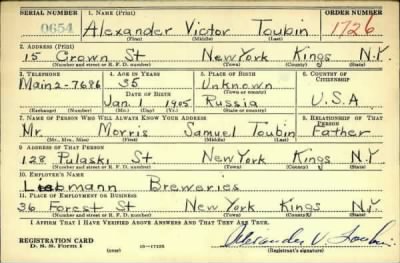 SERIAL NUMBER 1. NAME (Print) ORDER NUMBER
0654 Alexander Victor Toubin 1726
(First) (Middle) (Last)
2. ADDRESS (Print)
15 Crown St New York Kings N.Y.
(Number and street or R. F. D. number) (Town) (County) (State)
3. TELEPHONE 4. AGE IN YEARS 5. PLACE OF BIRTH 6. COUNTRY OF CITIZENSHIP
Main2-7686 35 Unknown
DATE OF BIRTH (Town or county)
Jan. 1 1905 Russia U.S.A
(Exchange) (Number) (Mo.) (Day) (Yr.) (State or country)
7. NAME OF PERSON WHO WILL ALWAYS KNOW YOUR ADDRESS 8. RELATIONSHIP OF THAT PERSON
Mr. Morris Samuel Toubin Father
(Mr., Mrs., Miss) (First) (Middle) (Last)
9. ADDRESS OF THAT PERSON
128 Pulaski St New York Kings N.Y
(Number and street or R. F. D. number) (Town) (County) (State)
10. EMPLOYER'S NAME
Liebmann Breweries
11. PLACE OF EMPLOYMENT OR BUSINESS
36 Forest St New York Kings N.Y.
(Number and street or R. F. D. number) (Town) (County) (State)
I AFFIRM THAT I HAVE VERIFIED ABOVE ANSWERS AND THAT THEY ARE TRUE.
REGISTRATION CARD Alexander V Toubin
D. S. S. Form 1 16—17105 (Registrant's signature)